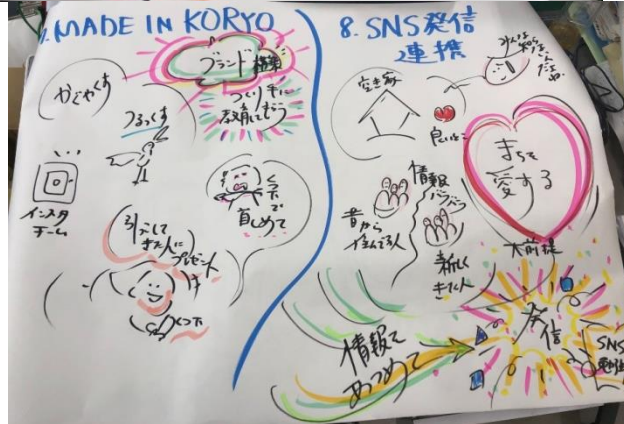 MADE IN KORYO
ブランド構築
つくり手に
教育してもらう
かぐやくす
つるっくす
インスタ
チーム
くつ下で
首しめて
引越して
きた人に
プレゼント
くつ下
8. SNS発信
連携
みんな知ら
ないん
だよね。
空き家
良いとこ
まちを
愛する
大前提
情報
バラバラ
昔から
住んでる人
新しく
きた人
情報を
あつめて
発信
SNS